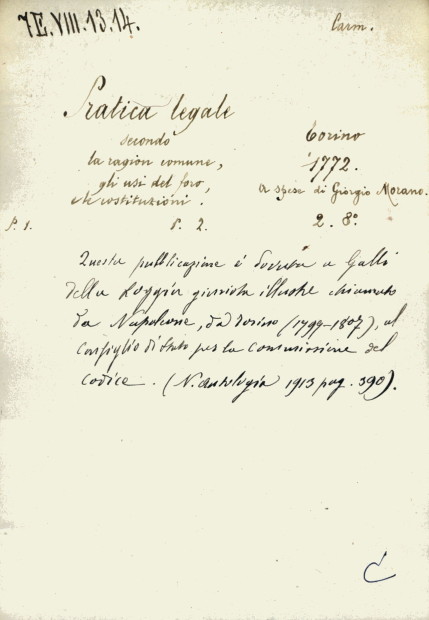 7E.VIII.13.14.
Carm.
Pratica legale
secondo
la ragion comune,
gli usi del foro,
e le costituzioni.
Torino
1772.
A spese di Giorgio Morano.
P. 1.
P. 2.
2. 8°.
Questa pubblicazione è dovuta a Galli
della Loggia giurista illustre chiamato
da Napoleone, da Torino (1799-1807), al
Consiglio di Stato per la Commissione del
codice. (N. Antologia 1913 pag. 390).